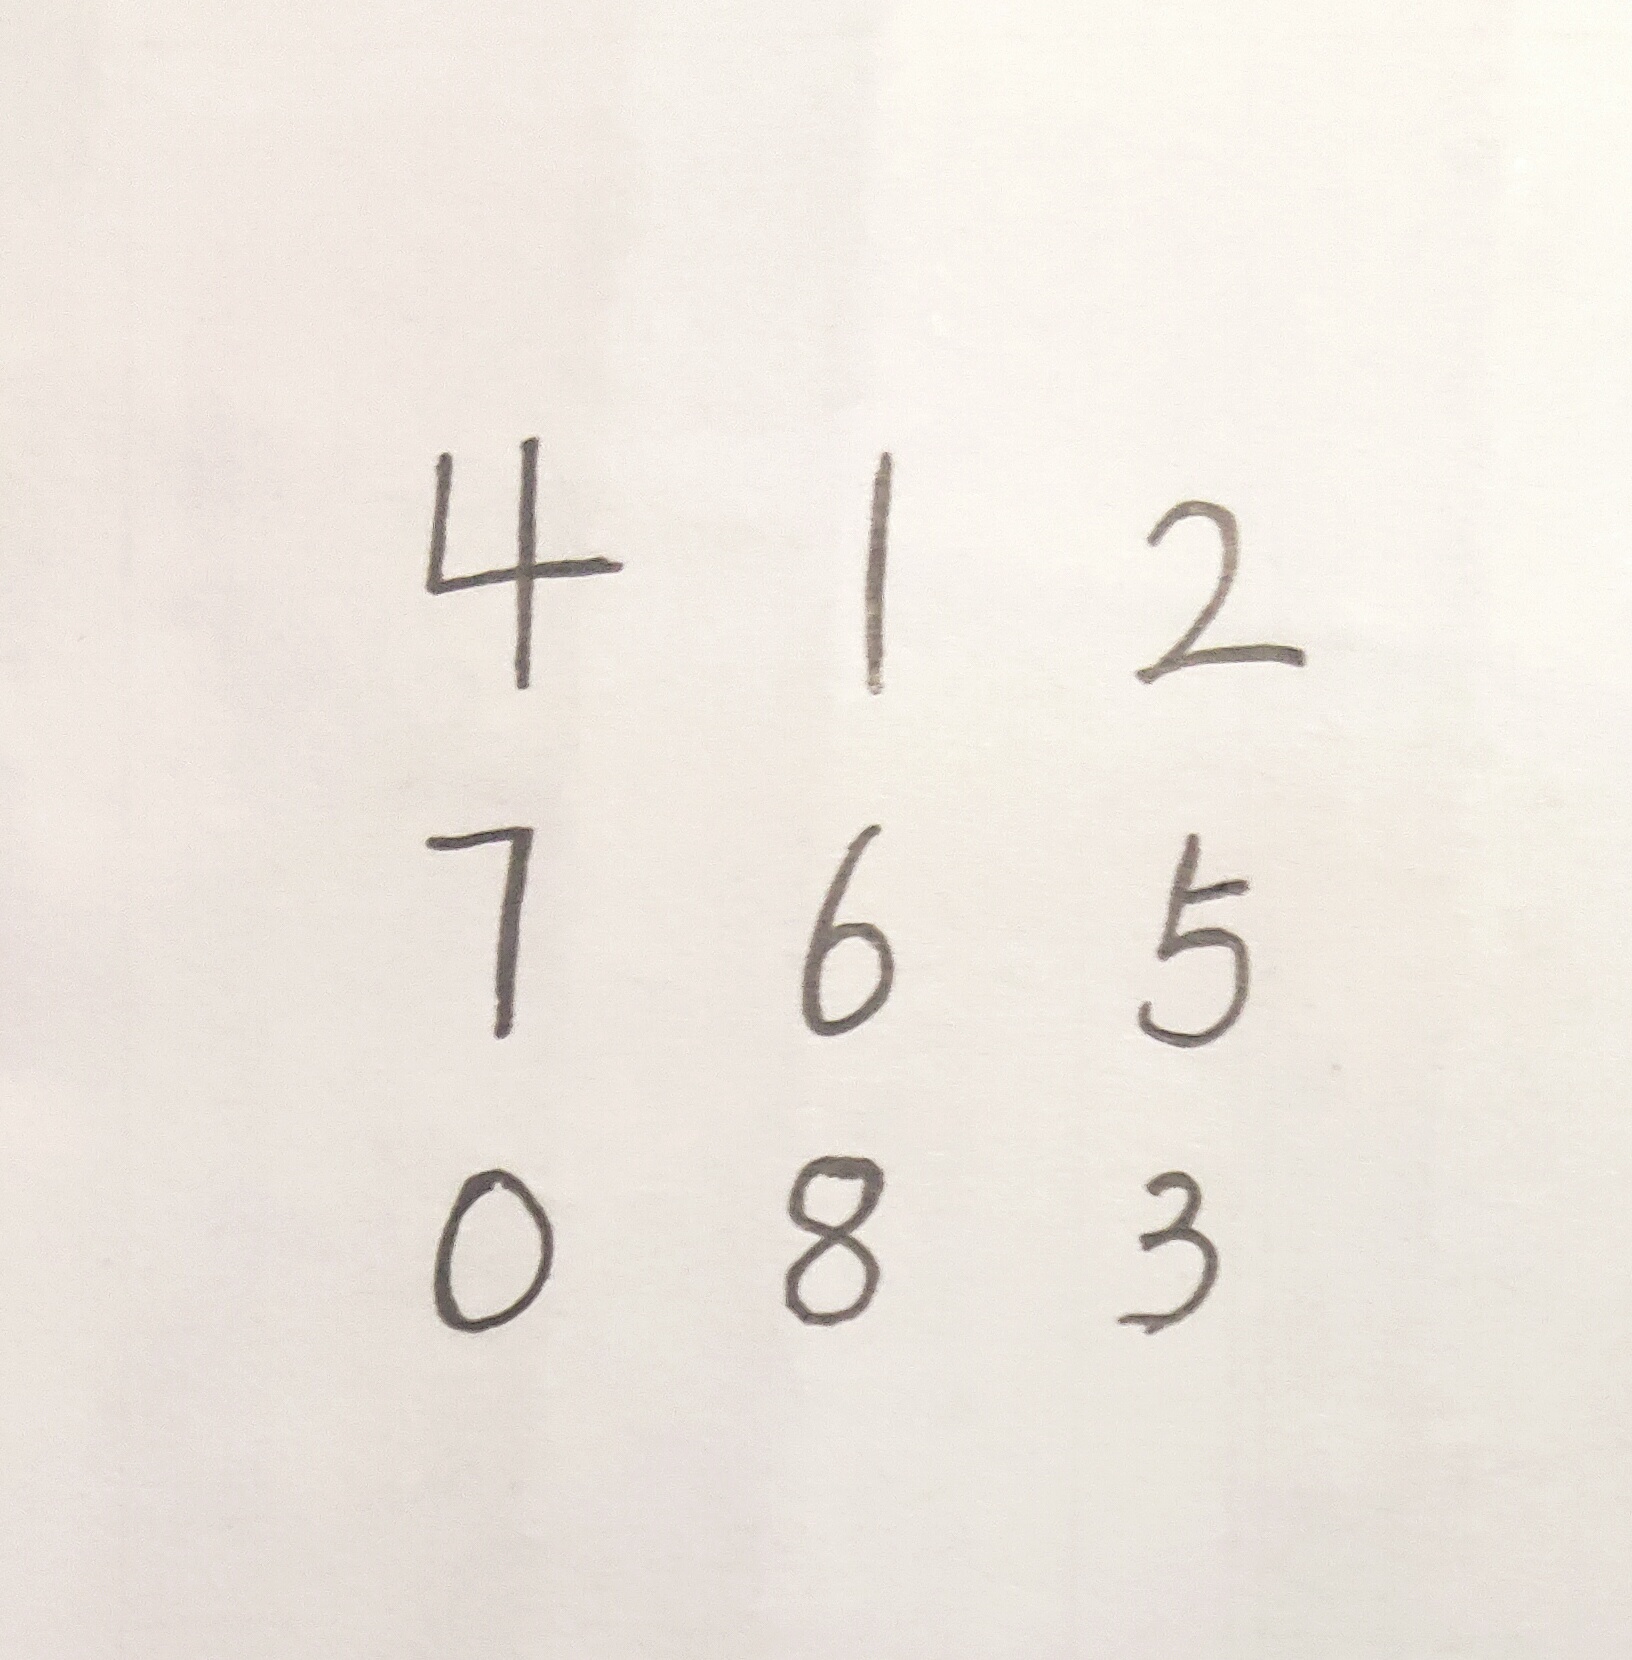 4 1 2
7 6 5
0 8 3